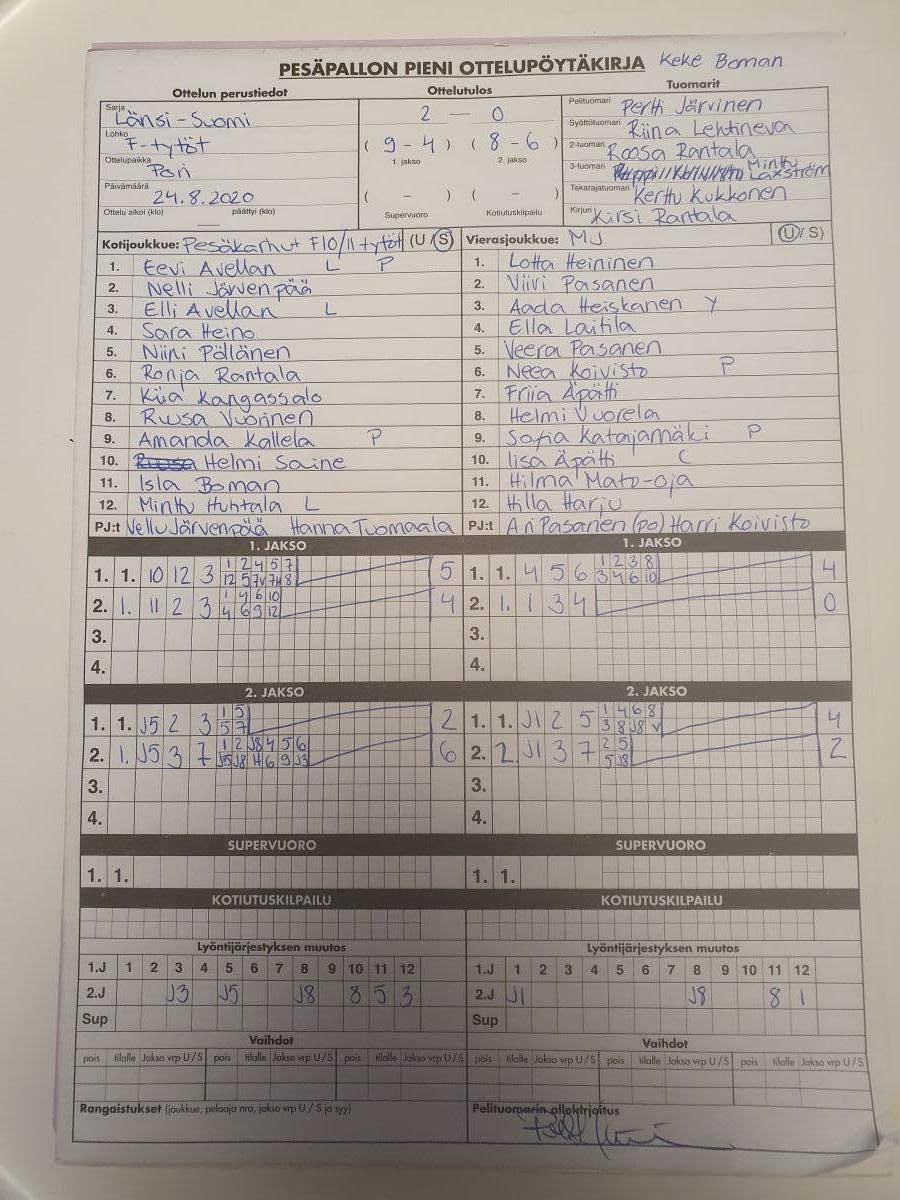 PESÄPALLON PIENI OTTELUPÖYTÄKIRJA Keke Boman
Ottelun perustiedot Ottelutulos Tuomarit
Sarja Länsi-Suomi 2 — 0 Pelituomari Pertti Järvinen
Lohko F-tytöt ( 9 - 4 ) ( 8 - 6 ) Syöttötuomari Riina Lehtineva
1. jakso 2. jakso 2-tuomari Roosa Rantala
Ottelupaikka Pori 3-tuomari Minttu Laxström
Päivämäärä 24.8.2020 ( - ) ( - ) Takarajatuomari Kerttu Kukkonen
Ottelu alkoi (klo) päättyi (klo) Supervuoro Kotiutuskilpailu Kirjuri Kirsi Rantala
Kotijoukkue: Pesäkarhut F10/11-tytöt (U/S) Vierasjoukkue: MJ (U/S)
1. Eevi Avellan L P 1. Lotta Heininen
2. Nelli Järvenpää 2. Viivi Pasanen
3. Elli Avellan L 3. Aada Heiskanen Y
4. Sara Heino 4. Ella Laitila
5. Niini Pöllänen 5. Veera Pasanen
6. Ronja Rantala 6. Neea Koivisto P
7. Kiia Kangassalo 7. Friia Äpätti
8. Ruusa Vuorinen 8. Helmi Vuorela
9. Amanda Kallela P 9. Sofia Katajamäki P
10. Helmi Saine 10. Iisa Äpätti C
11. Isla Boman 11. Hilma Mato-oja
12. Minttu Huhtala L 12. Hilla Harju
PJ:t Vellu Järvenpää Hanna Tuomaala PJ:t Ari Pasanen (po) Harri Koivisto
1. JAKSO 1. JAKSO
1. 1. 10 12 3 1 2 4 5 7 5 1. 1. 4 5 6 1 2 3 8 4
12 5 7V 7H 8 3 4 6 10
2. 1. 11 2 3 1 4 6 10 4 2. 1. 1 3 4 0
4 6 9 12
3. 3.
4. 4.
2. JAKSO 2. JAKSO
1. 1. J5 2 3 1 5 2 1. 1. J1 2 5 1 4 6 8 4
5 7 3 8 J8 V
2. 1. J5 3 7 1 2 J8 4 5 6 6 2. 2. J1 3 7 2 5 2
J5 J8 4 6 9 J3 5 J8
3. 3.
4. 4.
SUPERVUORO SUPERVUORO
1. 1. 1. 1.
KOTIUTUSKILPAILU KOTIUTUSKILPAILU
Lyöntijärjestyksen muutos Lyöntijärjestyksen muutos
1.J 1 2 3 4 5 6 7 8 9 10 11 12 1.J 1 2 3 4 5 6 7 8 9 10 11 12
2.J J3 J5 J8 8 5 3 2.J J1 J8 8 1
Sup Sup
Vaihdot Vaihdot
pois tilalle Jakso vrp U/S pois tilalle Jakso vrp U/S pois tilalle Jakso vrp U/S pois tilalle Jakso vrp U/S pois tilalle Jakso vrp U/S pois tilalle Jakso vrp U/S
Rangaistukset (joukkue, pelaaja nro, jakso vrp U / S ja syy) Pelituomarin allekirjoitus